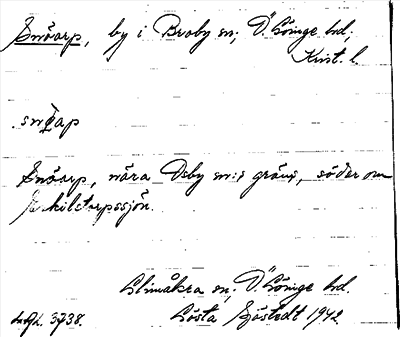 Snöarp, by i Broby sn; Ö. Göinge hd;
Krist. l.
snöap
Snöarp, nära Osby sn:s gräns, söder om
Ekilstorpssjön.
Glimåkra sn; Ö. Göinge hd.
acc. 3738. Gösta Sjöstedt 1942